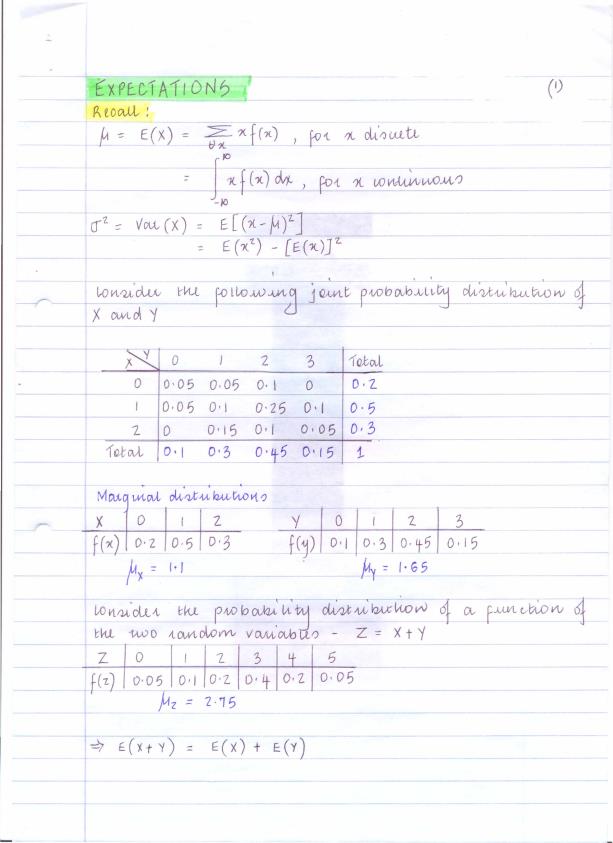 EXPECTATIONS (1)
Recall:
μ = E(X) = Σ x f(x), for x discrete
∀x
= ∫_{-∞}^{∞} x f(x) dx, for x continuous
σ² = Var(X) = E[(x-μ)²]
= E(x²) - [E(x)]²
Consider the following joint probability distribution of
X and Y
X Y 0 1 2 3 Total
0 0.05 0.05 0.1 0 0.2
1 0.05 0.1 0.25 0.1 0.5
2 0 0.15 0.1 0.05 0.3
Total 0.1 0.3 0.45 0.15 1
Marginal distributions
X 0 1 2 Y 0 1 2 3
f(x) 0.2 0.5 0.3 f(y) 0.1 0.3 0.45 0.15
μ_X = 1.1 μ_Y = 1.65
Consider the probability distribution of a function of
the two random variables - Z = X+Y
Z 0 1 2 3 4 5
f(z) 0.05 0.1 0.2 0.4 0.2 0.05
μ_Z = 2.75
⇒ E(X+Y) = E(X) + E(Y)